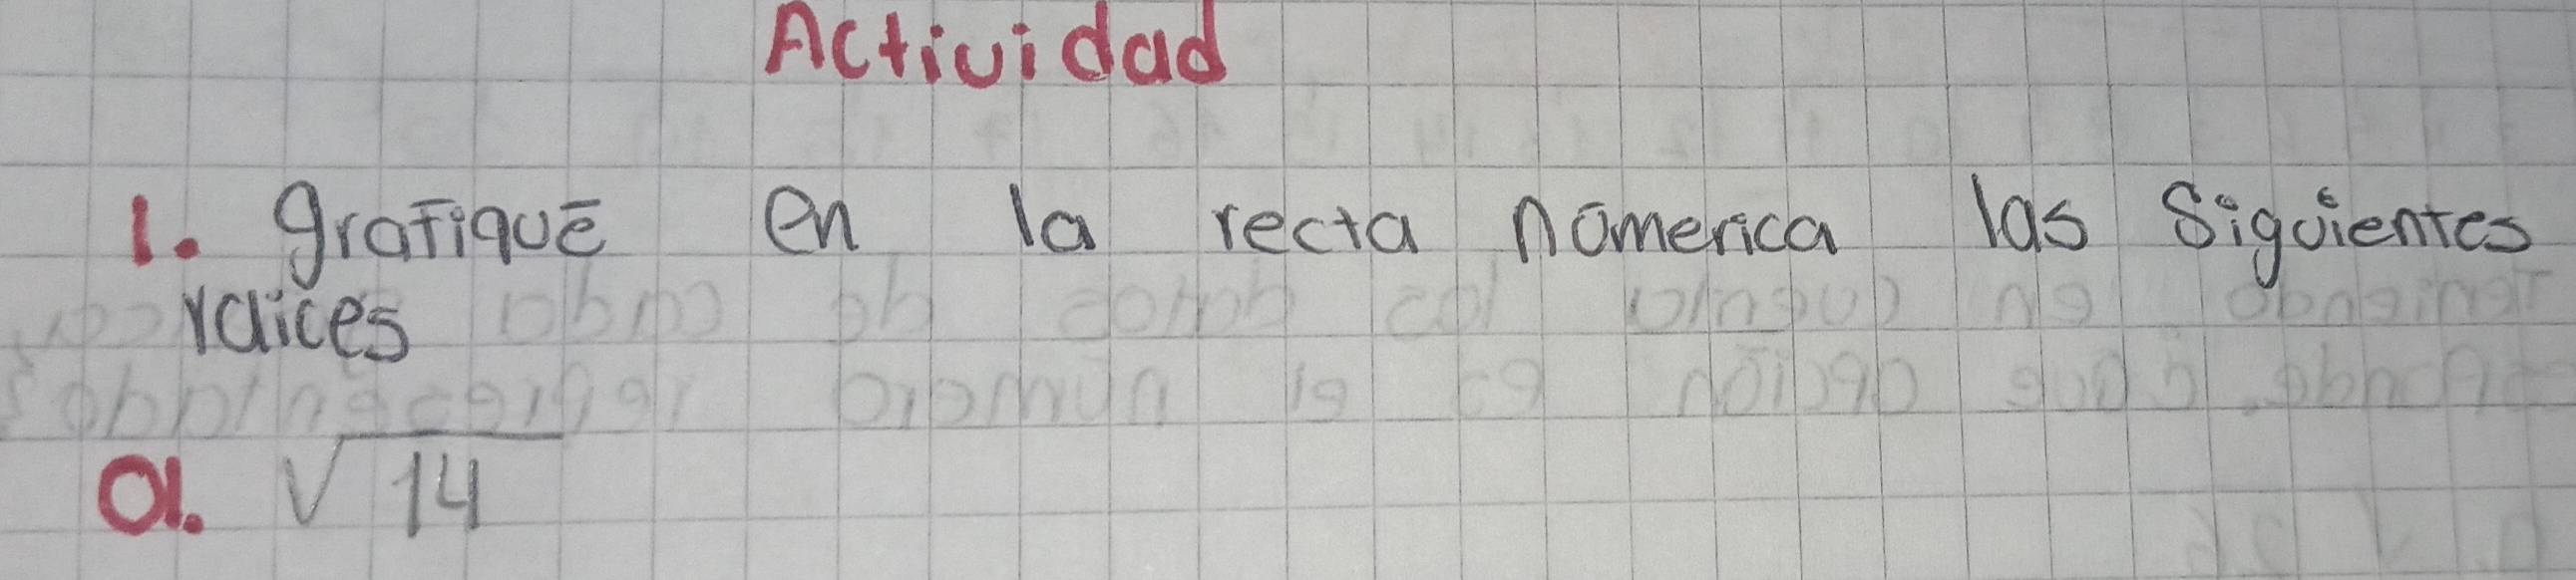 Actividad
1. grafiqué en la recta númerica las siguientes
raices
a. √14